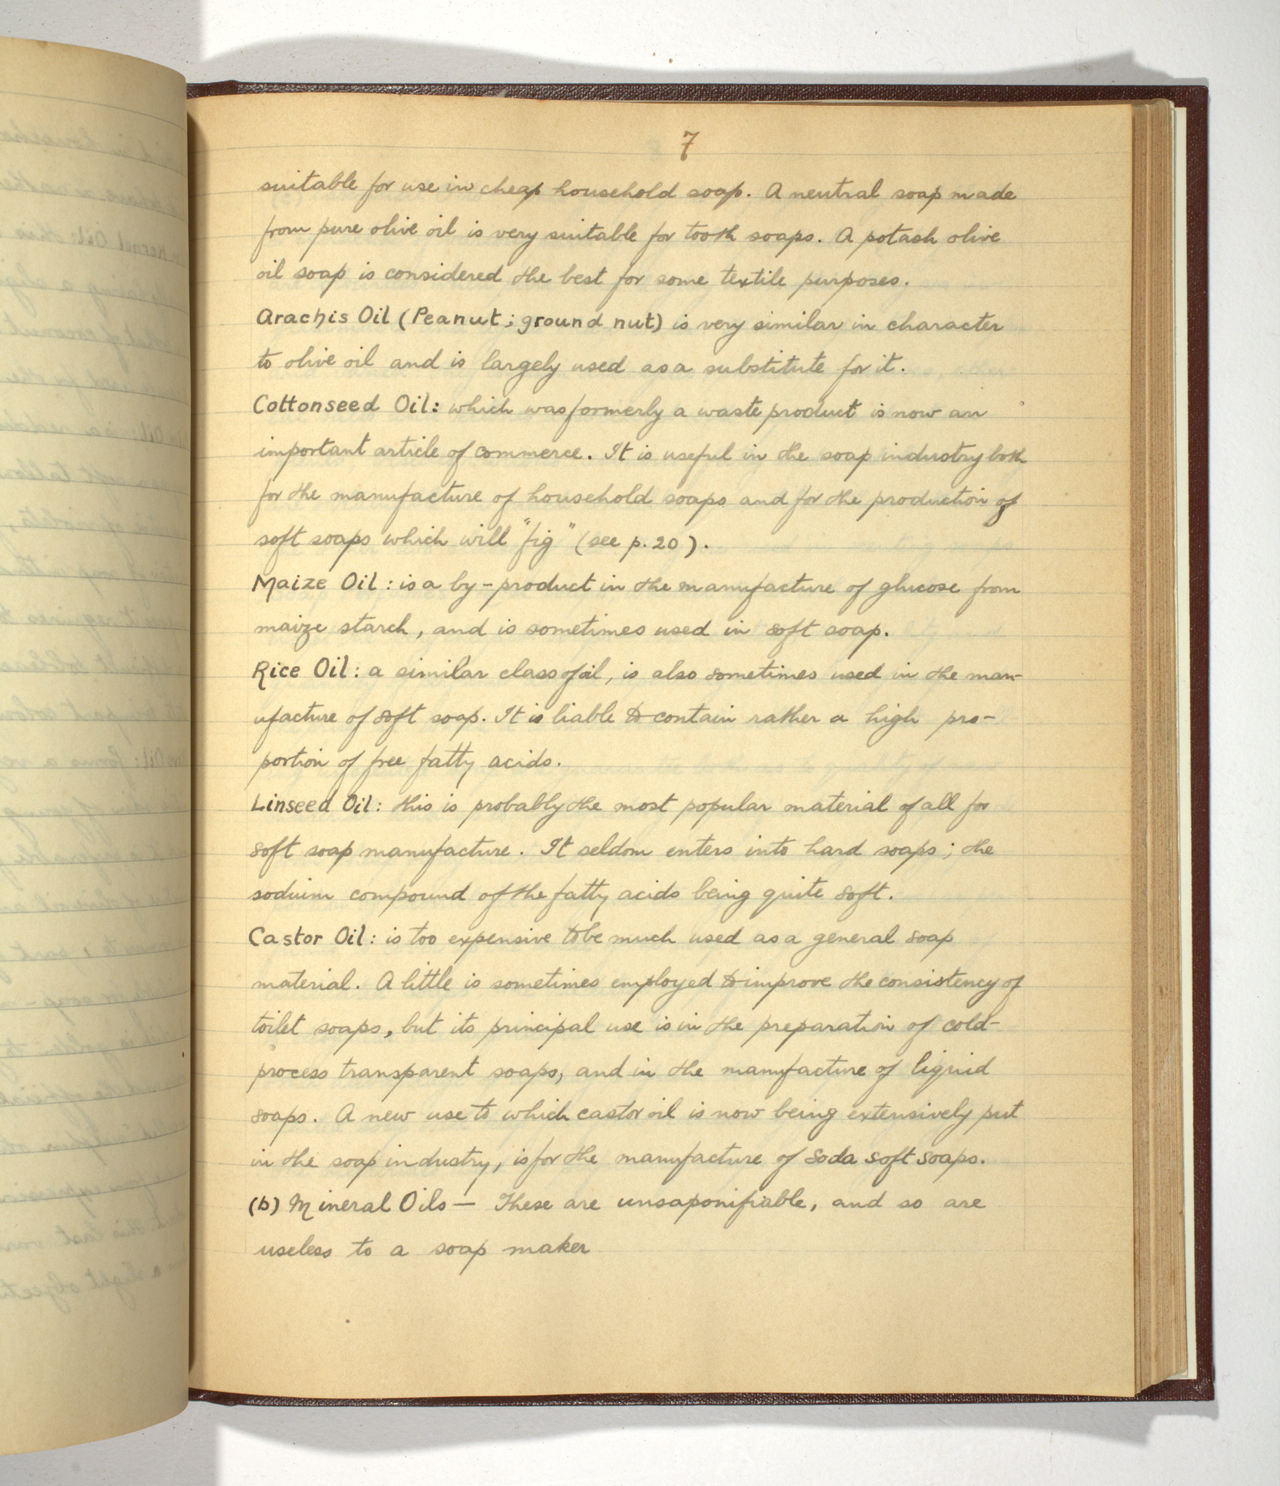 7
suitable for use in cheap household soap. A neutral soap made
from pure olive oil is very suitable for tooth soaps. A potash olive
oil soap is considered the best for some textile purposes.
Arachis Oil (Peanut; ground nut) is very similar in character
to olive oil and is largely used as a substitute for it.
Cottonseed Oil: which was formerly a waste product is now an
important article of commerce. It is useful in the soap industry both
for the manufacture of household soaps and for the production of
soft soaps which will "fig" (see p. 20).
Maize Oil: is a by-product in the manufacture of glucose from
maize starch, and is sometimes used in soft soap.
Rice Oil: a similar class of oil, is also sometimes used in the man-
ufacture of soft soap. It is liable to contain rather a high pro-
portion of free fatty acids.
Linseed Oil: this is probably the most popular material of all for
soft soap manufacture. It seldom enters into hard soaps; the
sodium compound of the fatty acids being quite soft.
Castor Oil: is too expensive to be much used as a general soap
material. A little is sometimes employed to improve the consistency of
toilet soaps, but its principal use is in the preparation of cold-
process transparent soaps, and in the manufacture of liquid
soaps. A new use to which castor oil is now being extensively put
in the soap industry, is for the manufacture of soda soft soaps.
(b) Mineral Oils — These are unsaponifiable, and so are
useless to a soap maker